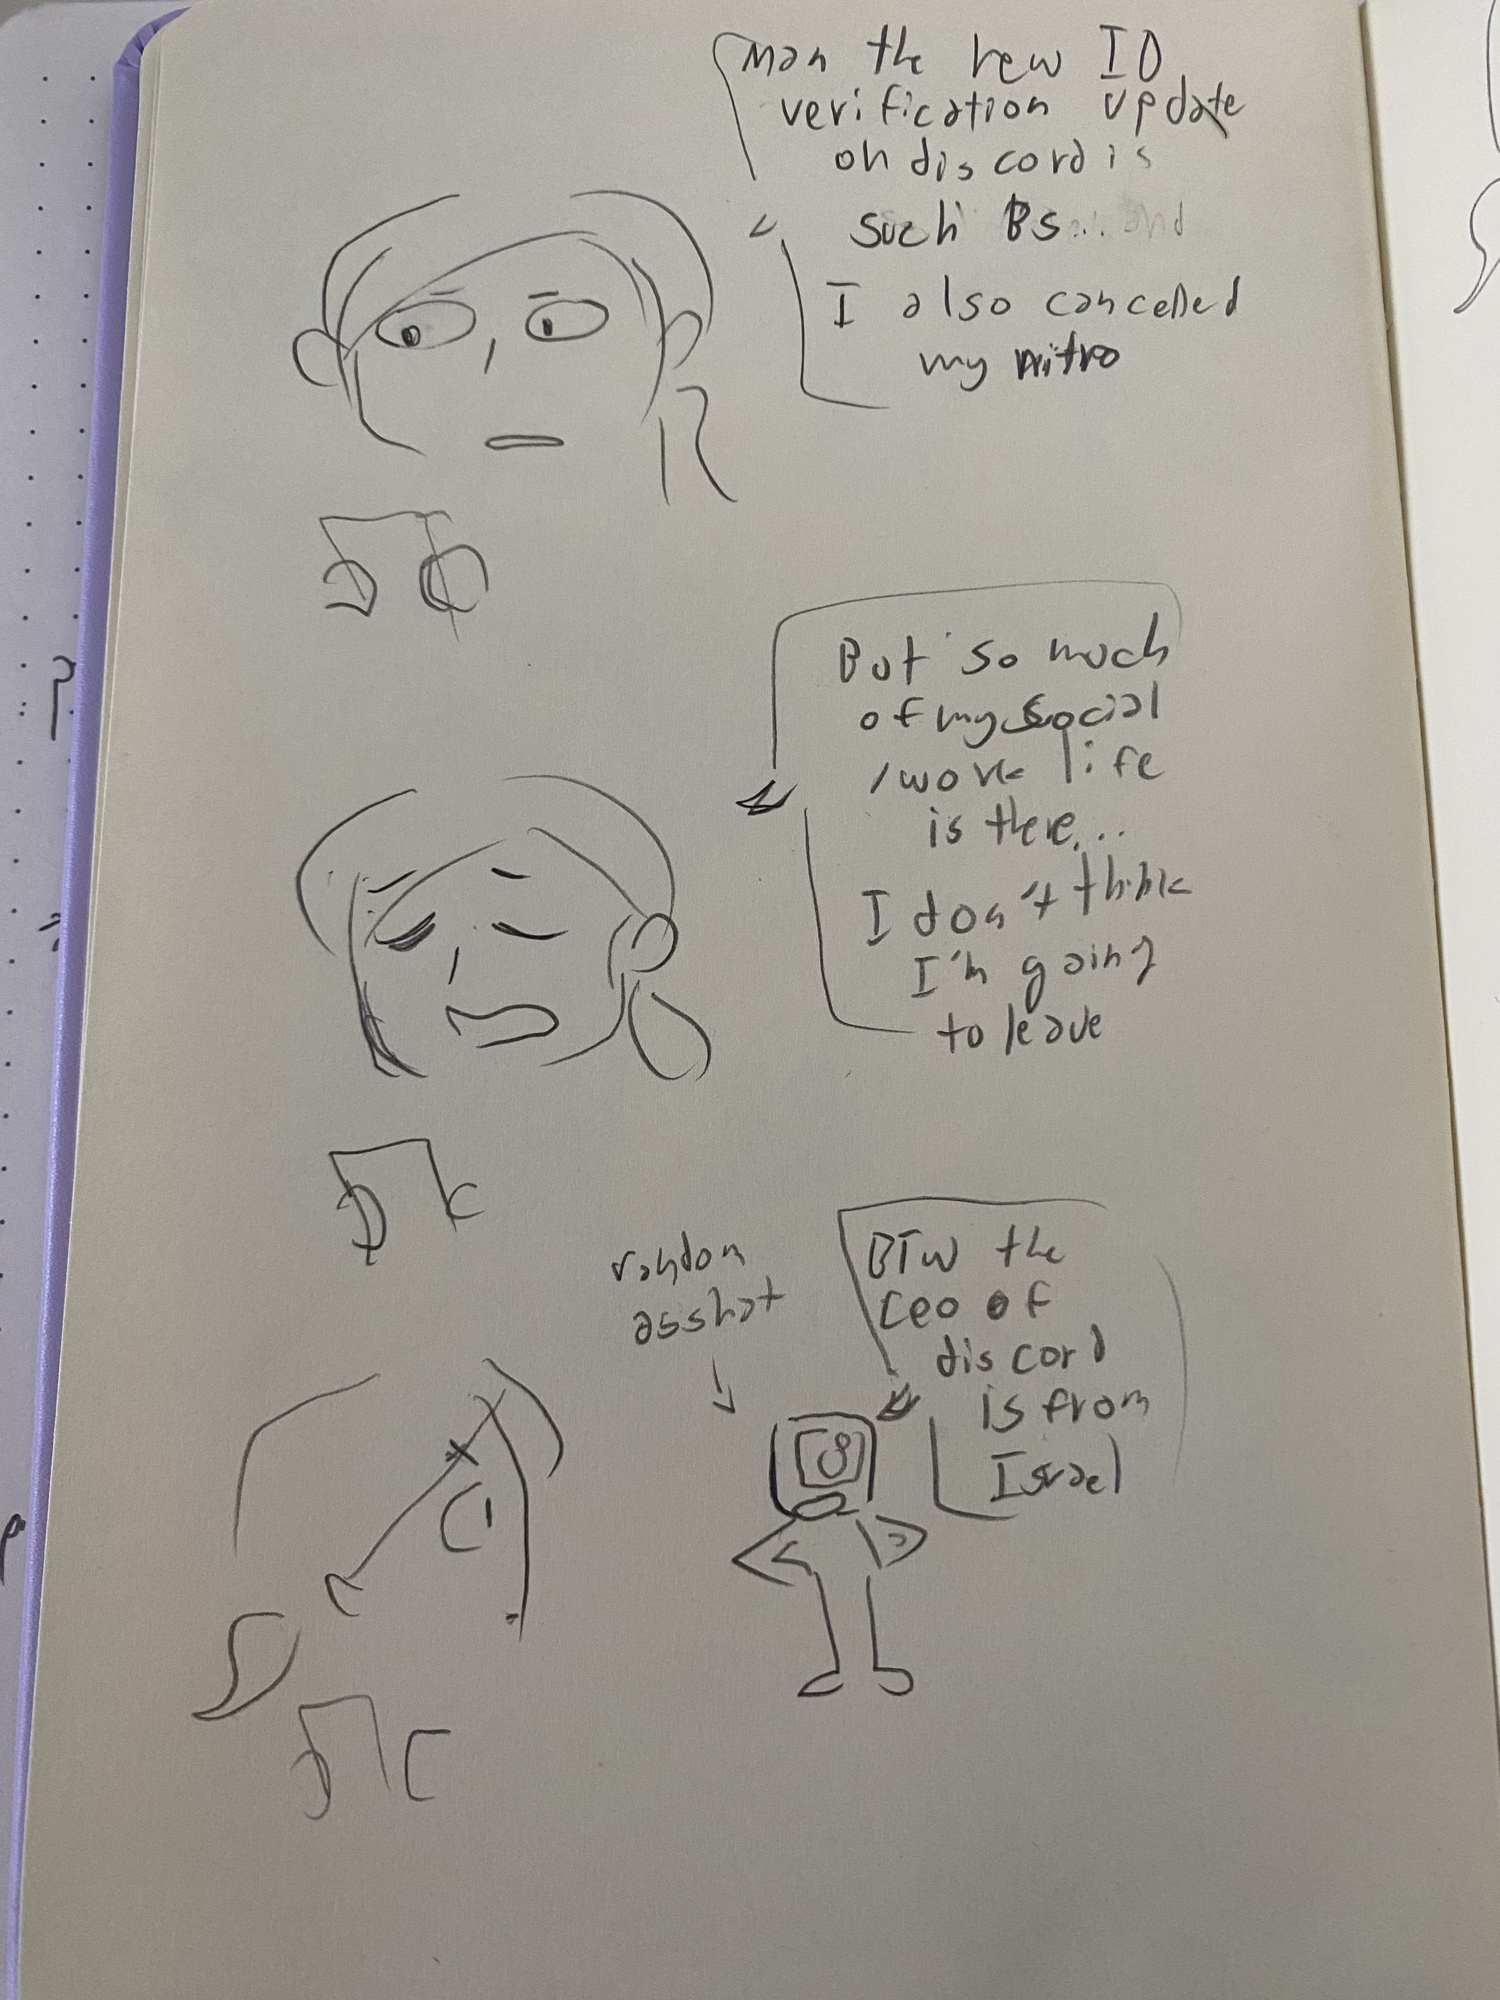 Man the new ID
verification update
on discord is
such BS
I also cancelled
my nitro
But so much
of my social
/work life
is there...
I don't think
I'm going
to leave
random
asshat
BTW the
Ceo of
discord
is from
Israel